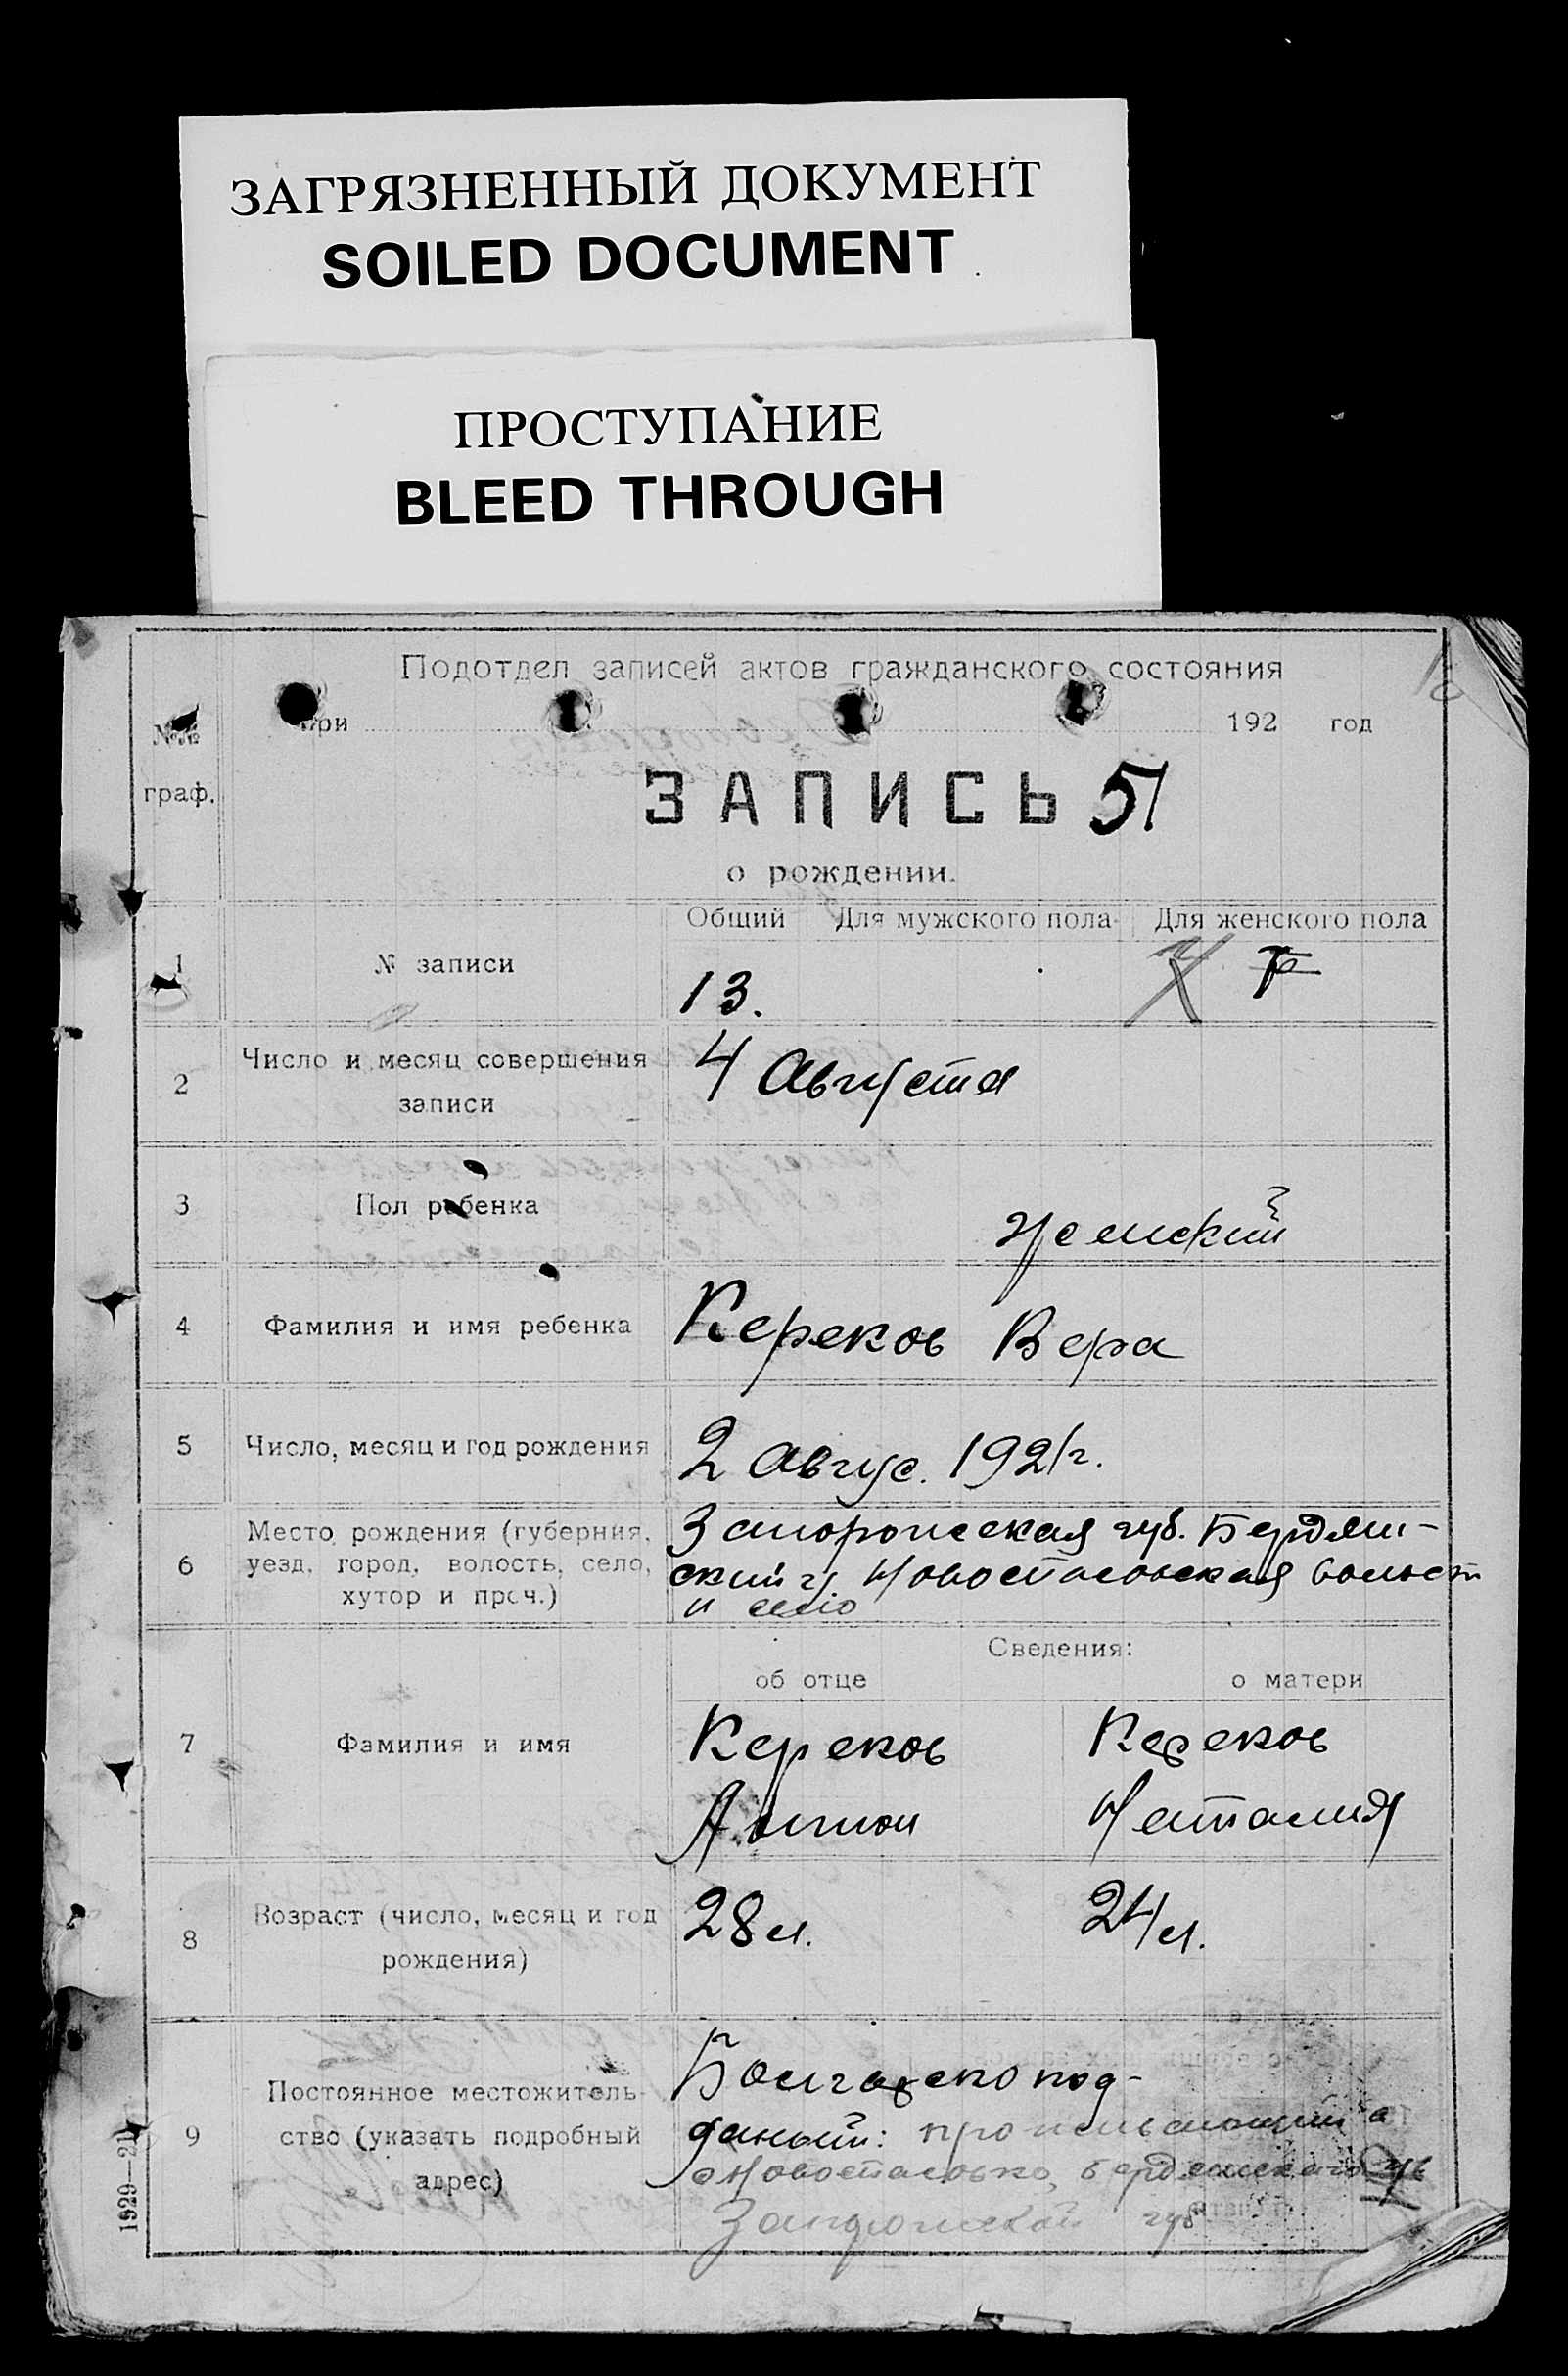 ЗАГРЯЗНЕННЫЙ ДОКУМЕНТ
SOILED DOCUMENT
ПРОСТУПАНИЕ
BLEED THROUGH
Подотдел записей актов гражданского состояния
при 192 год
№№
граф.
ЗАПИСЬ 51
о рождении.
Общий Для мужского пола Для женского пола
1 № записи 13.
2 Число и месяц совершения
записи
4 Августа
3 Пол ребенка
женский
4 Фамилия и имя ребенка Кереков Вера
5 Число, месяц и год рождения 2 Авгус. 1921г.
6 Место рождения (губерния,
уезд, город, волость, село,
хутор и проч.)
Запорожская губ. Бердян-
ский у. Новоспасовская волост
и село
Сведения:
об отце о матери
7 Фамилия и имя
Кереков Кереков
Наталия
8 Возраст (число, месяц и год
рождения)
28 л. 24 л.
9 Постоянное местожитель-
ство (указать подробный
адрес)
Болгарско под-
даный:
Новоспасовко, бердянскаго
Запорожской губ
1929—21